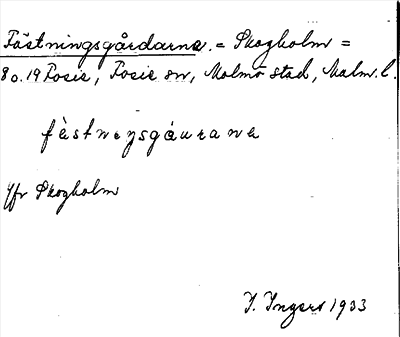 Fästningsgårdarna = Skogholm =
80.19 Fosie, Fosie sn, Malmö stad, Malm. l.
fästnıŋsgáurana
Jfr Skogholm
I. Ingers 1933